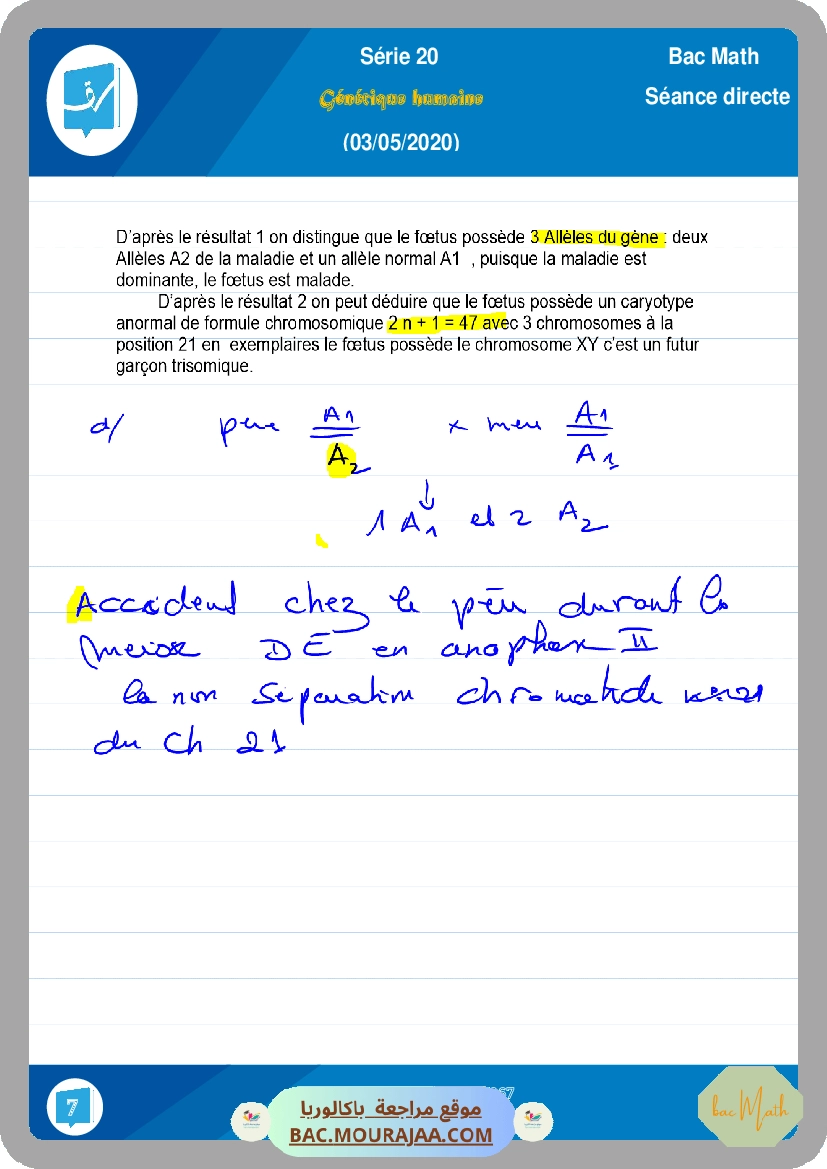 Série 20
Bac Math
Génétique humaine
Séance directe
(03/05/2020)
D'après le résultat 1 on distingue que le fœtus possède 3 Allèles du gène : deux
Allèles A2 de la maladie et un allèle normal A1 , puisque la maladie est
dominante, le fœtus est malade.
D'après le résultat 2 on peut déduire que le fœtus possède un caryotype
anormal de formule chromosomique 2 n + 1 = 47 avec 3 chromosomes à la
position 21 en exemplaires le fœtus possède le chromosome XY c'est un futur
garçon trisomique.
d/ pere A1 x mere A1
A2 A1
1 A1 et 2 A2
Accident chez le père durant la
meiose DE en anaphase II
la non séparation chromatide
du Ch 21
7
موقع مراجعة باكالوريا
BAC.MOURAJAA.COM
bac Math